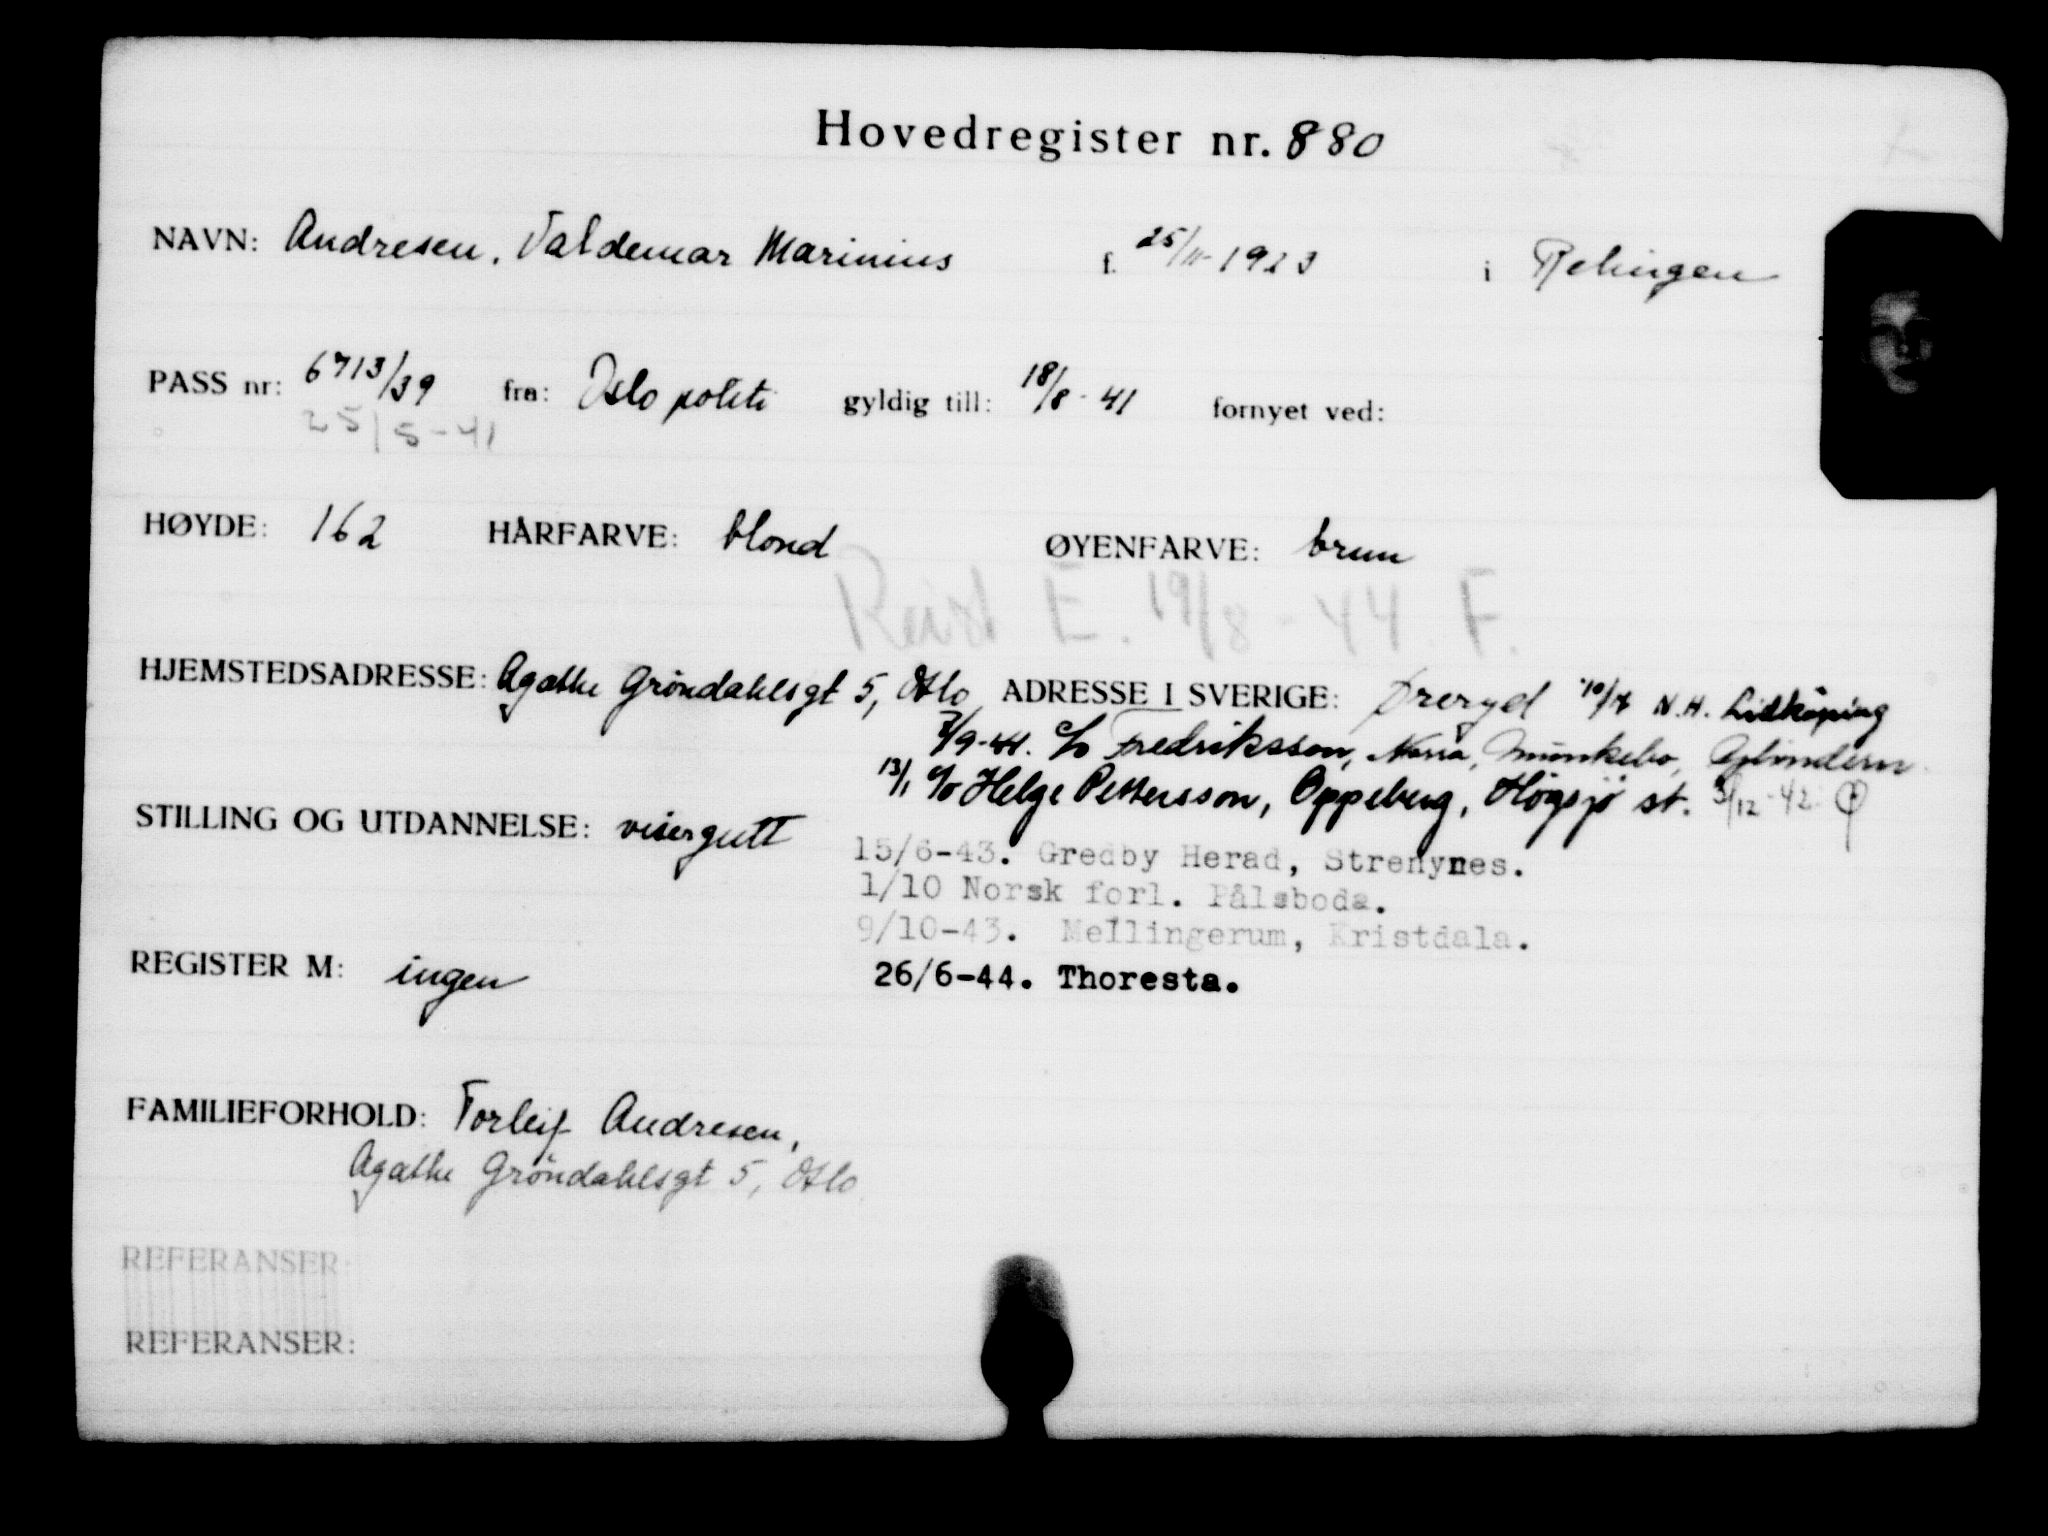 Hovedregister nr. 880
NAVN: Andresen, Valdemar Marinius f. 25/11-1923 i Rælingen
PASS nr: 6713/39 fra: Oslo politi gyldig till: 18/8-41 fornyet ved:
25/5-41
HØYDE: 162 HÅRFARVE: blond ØYENFARVE: brun
Reist E. 19/8-44. F.
HJEMSTEDSADRESSE: Agathe Gröndahlsgt 5, Oslo ADRESSE I SVERIGE: Öreryd N.H. Lidköping
7/9-44. c/o Fredriksson, Norra, Munkebo,
13/1 c/o Helge Pettersson, Oppeberg, Högsjö st. 3/12-42
STILLING OG UTDANNELSE: visergutt
15/6-43. Gredby Herad, Strenynes.
1/10 Norsk forl. Pålsboda.
9/10-43. Mellingerum, Kristdala.
REGISTER M: ingen
26/6-44. Thoresta.
FAMILIEFORHOLD: Torleif Andresen,
Agathe Gröndahlsgt 5, Oslo
REFERANSER:
REFERANSER: